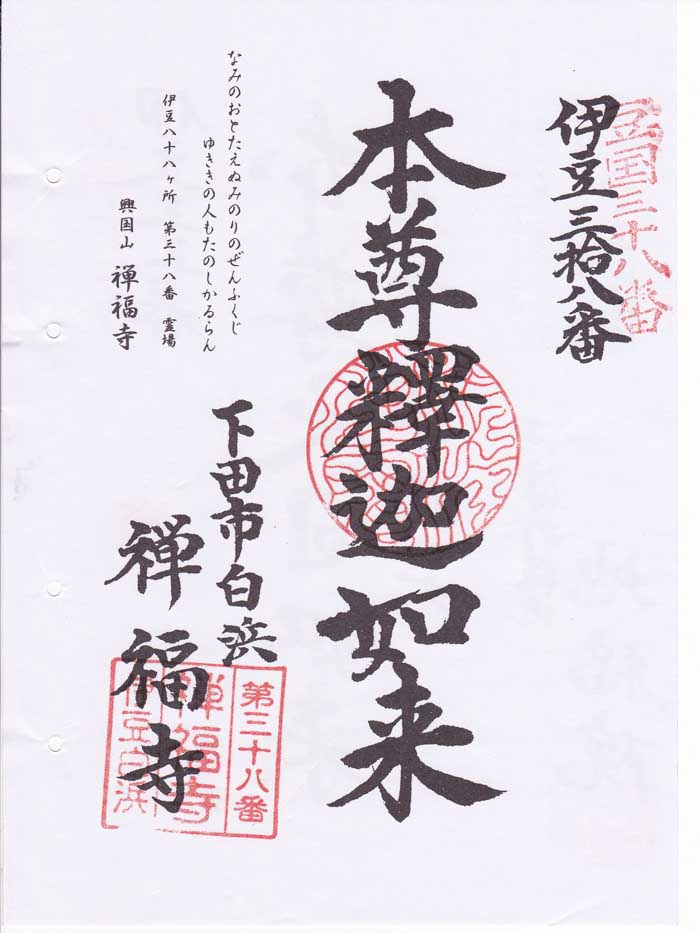 豆国三十八番
伊豆三拾八番
本尊釋迦如来
なみのおとたえぬみのりのぜんふくじ
ゆききの人もたのしかるらん
伊豆八十八ヶ所　第三十八番　霊場
興国山　禅福寺
下田市白浜
禅福寺
第三十八番
禅福寺
伊豆白浜